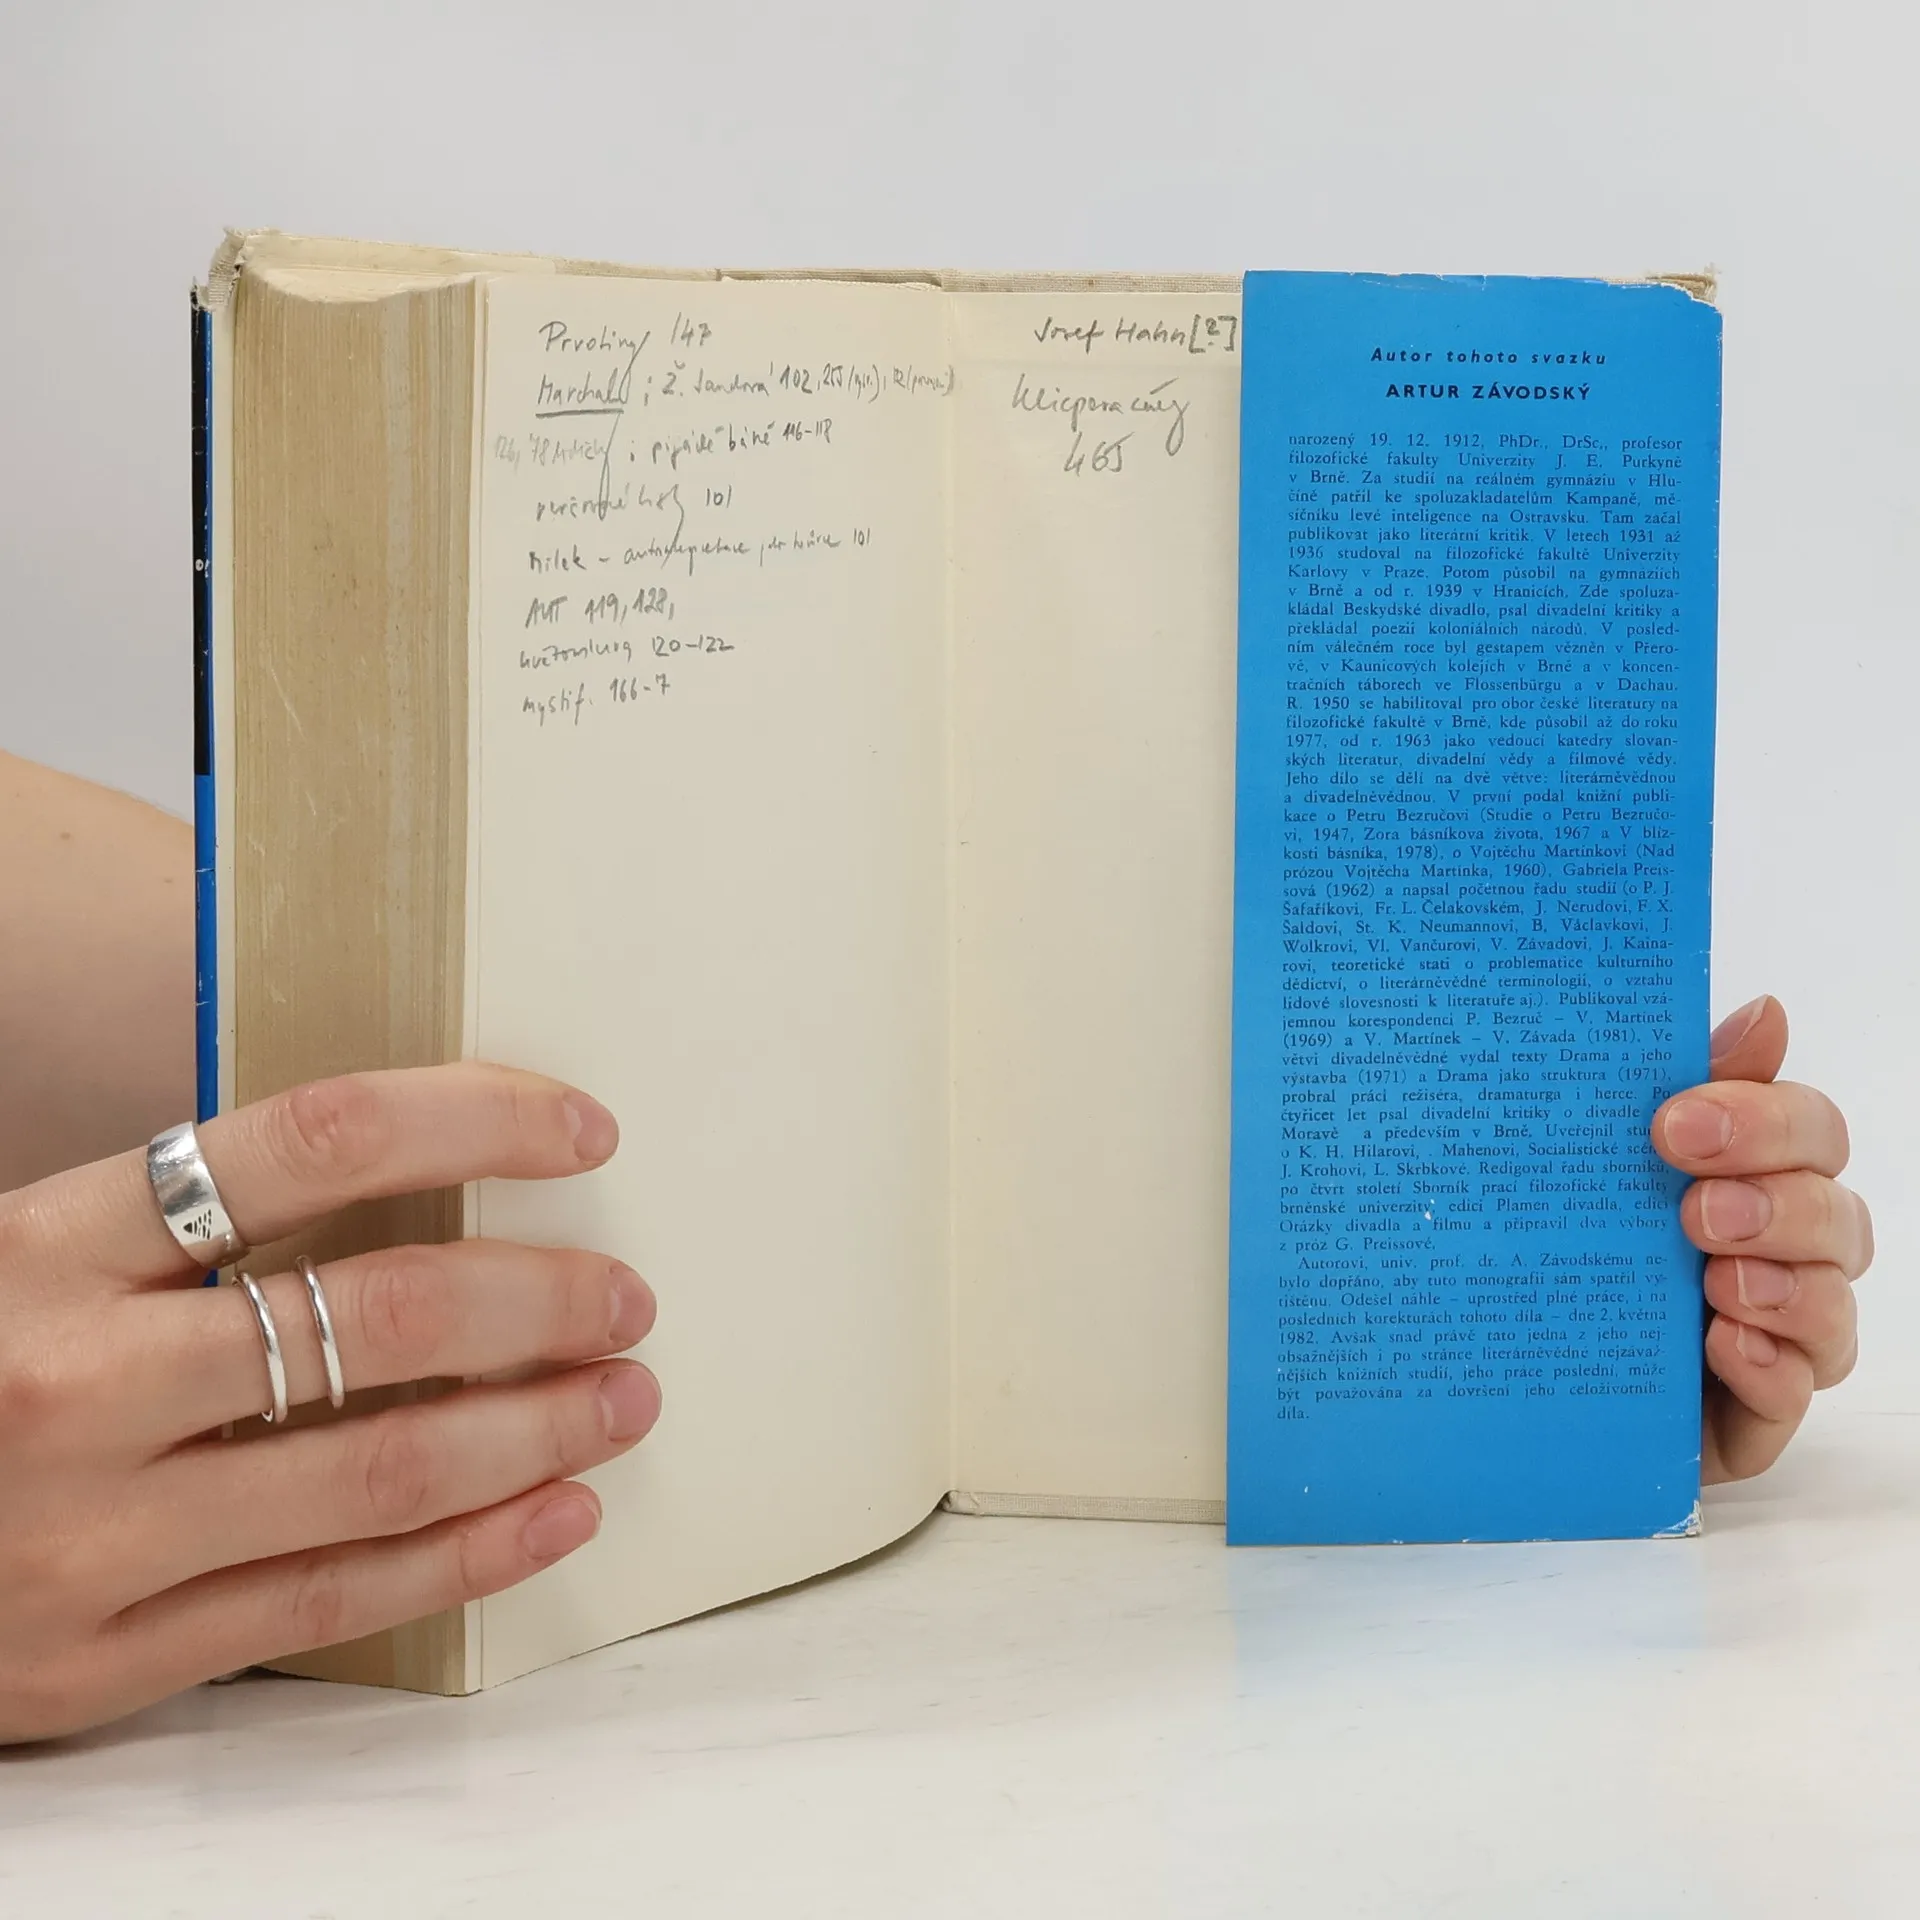 Prvotiny 147
Marchal ; Ž. Sandová 102, 255
126, 78 ; 116-118
101
Milek - 101
AUT 119, 128,
120-122
mystif. 166-7
Josef Hahn [?]
Klicpera
465
Autor tohoto svazku
ARTUR ZÁVODSKÝ
narozený 19. 12. 1912, PhDr., DrSc., profesor
filozofické fakulty Univerzity J. E. Purkyně
v Brně. Za studií na reálném gymnáziu v Hlu-
číně patřil ke spoluzakladatelům Kampaně, mě-
síčníku levé inteligence na Ostravsku. Tam začal
publikovat jako literární kritik. V letech 1931 až
1936 studoval na filozofické fakultě Univerzity
Karlovy v Praze. Potom působil na gymnáziích
v Brně a od r. 1939 v Hranicích. Zde spoluza-
kládal Beskydské divadlo, psal divadelní kritiky a
překládal poezii koloniálních národů. V posled-
ním válečném roce byl gestapem vězněn v Přero-
vě, v Kaunicových kolejích v Brně a v koncen-
tračních táborech ve Flossenbürgu a v Dachau.
R. 1950 se habilitoval pro obor české literatury na
filozofické fakultě v Brně, kde působil až do roku
1977, od r. 1963 jako vedoucí katedry slovan-
ských literatur, divadelní vědy a filmové vědy.
Jeho dílo se dělí na dvě větve: literárněvědnou
a divadelněvědnou. V první podal knižní publi-
kace o Petru Bezručovi (Studie o Petru Bezručo-
vi, 1947, Zora básníkova života, 1967 a V blíz-
kosti básníka, 1978), o Vojtěchu Martínkovi (Nad
prózou Vojtěcha Martínka, 1960), Gabriela Preis-
sová (1962) a napsal početnou řadu studií (o P. J.
Šafaříkovi, Fr. L. Čelakovském, J. Nerudovi, F. X.
Šaldovi, St. K. Neumannovi, B. Václavkovi, J.
Wolkrovi, Vl. Vančurovi, V. Závadovi, J. Kaina-
rovi, teoretické stati o problematice kulturního
dědictví, o literárněvědné terminologii, o vztahu
lidové slovesnosti k literatuře aj.). Publikoval vzá-
jemnou korespondenci P. Bezruč – V. Martínek
(1969) a V. Martínek – V. Závada (1981). Ve
větvi divadelněvědné vydal texty Drama a jeho
výstavba (1971) a Drama jako struktura (1971),
probral práci režiséra, dramaturga i herce. Po
čtyřicet let psal divadelní kritiky o divadle
Moravě a především v Brně. Uveřejnil stu
o K. H. Hilarovi, . Mahenovi, Socialistické scén
J. Krohovi, L. Skrbkové. Redigoval řadu sborníků,
po čtvrt století Sborník prací filozofické fakulty
brněnské univerzity, edici Plamen divadla, edici
Otázky divadla a filmu a připravil dva výbory
z próz G. Preissové.
Autorovi, univ. prof. dr. A. Závodskému ne-
bylo dopřáno, aby tuto monografii sám spatřil vy-
tištěnu. Odešel náhle – uprostřed plné práce, i na
posledních korekturách tohoto díla – dne 2. května
1982. Avšak snad právě tato jedna z jeho nej-
obsažnějších i po stránce literárněvědné nejzávaž-
nějších knižních studií, jeho práce poslední, může
být považována za dovršení jeho celoživotního
díla.